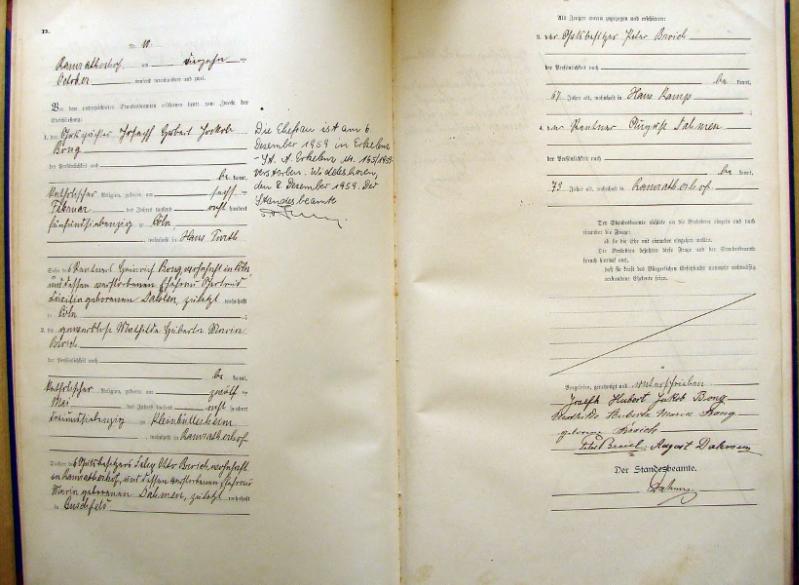 Nr. 10.
Ramratherhof, am vierzehn-
October tausend neunhundert und zwei.
Vor dem unterzeichneten Standesbeamten erschienen heute zum Zwecke der
Eheschließung:
1. der Gutspächter Joseph Hubert Jakob
Bong
der Persönlichkeit nach
be kannt,
katholischer Religion, geboren am sechs-
Februar des Jahres tausend acht hundert
fünfundsiebenzig zu Cöln
, wohnhaft in Haus Fürth
Sohn des Rentners Heinrich Bong wohnhaft in Cöln
und dessen verstorbenen Ehefrau Gertrud
Cäcilia geborenen Dahlen, zuletzt wohnhaft
in Cöln
2. die gewerblose Mathilde Huberta Maria
Broich
der Persönlichkeit nach
be kannt,
katholischer Religion, geboren am zwölf-
Mai des Jahres tausend acht hundert
neunundsiebenzig zu Kleinbüllesheim
, wohnhaft in Ramratherhof
Tochter des Gutsbesitzers Otto Broich wohnhaft
in Ramratherhof, und dessen verstorbenen Ehefrau
Maria geborenen Dahmen, zuletzt wohnhaft
in Buschfeld.
Die Ehefrau ist am 6.
Dezember 1959 in Erkelenz
-St. A. Erkelenz Nr. 195/1959-
verstorben.
den 8. Dezember 1959. Der
Standesbeamte
Als Zeugen waren zugezogen und erschienen:
3. der Gutsbesitzer Peter Broich
der Persönlichkeit nach
be kannt,
67 Jahre alt, wohnhaft in Haus Kamp
4. der Rentner August Dahmen
der Persönlichkeit nach
be kannt,
73 Jahre alt, wohnhaft in Ramratherhof.
Der Standesbeamte richtete an die Verlobten einzeln und nach
einander die Frage:
ob sie die Ehe mit einander eingehen wollen.
Die Verlobten bejahten diese Frage und der Standesbeamte
sprach hierauf aus,
daß sie kraft des Bürgerlichen Gesetzbuchs nunmehr rechtmäßig
verbundene Eheleute seien.
Vorgelesen, genehmigt und unterschrieben
Joseph Hubert Jakob Bong
Mathilde Huberta Maria Bong
geborene Broich
Peter Broich August Dahmen
Der Standesbeamte.
Dahmen